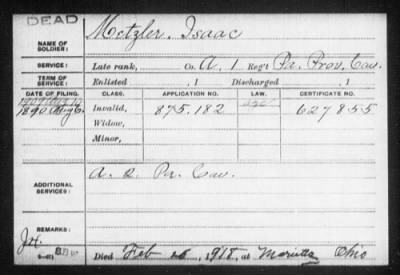 DEAD
NAME OF SOLDIER: Metzler, Isaac
SERVICE: Late rank, Co. A, 1 Reg't Pa. Prov. Cav.
TERM OF SERVICE: Enlisted , 1 Discharged , 1
DATE OF FILING. CLASS. APPLICATION NO. LAW. CERTIFICATE NO.
1890 Aug 6 Invalid, 875.182 627855
Widow,
Minor,
ADDITIONAL SERVICES: A. 2. Pa. Cav.
REMARKS:
Died Feb 1918, at Marietta Ohio